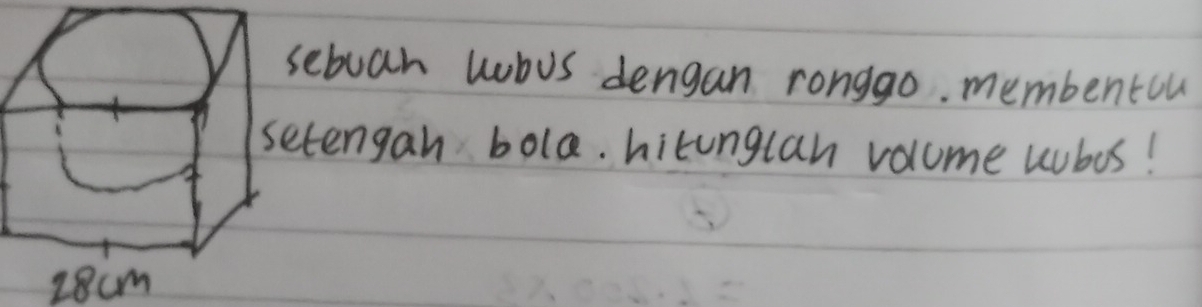 sebuah kubus dengan ronggo. membentuk
setengah bola. hitunglah volume kubus!
28cm